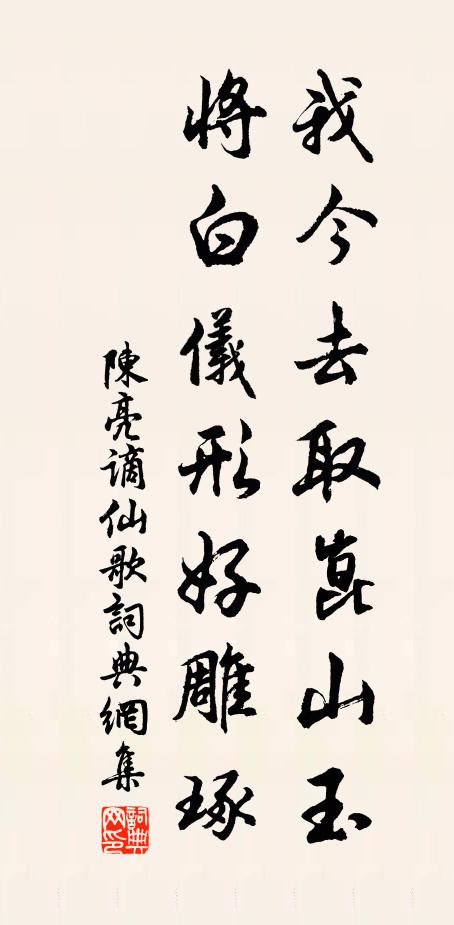 我今去取崑山玉
將白儀形好雕琢
陳亮謫仙歌詞典網集
詞典網印